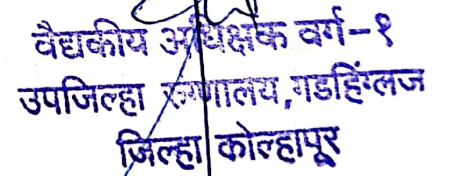 वैद्यकीय अधिक्षक वर्ग-१
उपजिल्हा रुग्णालय,गडहिंग्लज
जिल्हा कोल्हापूर